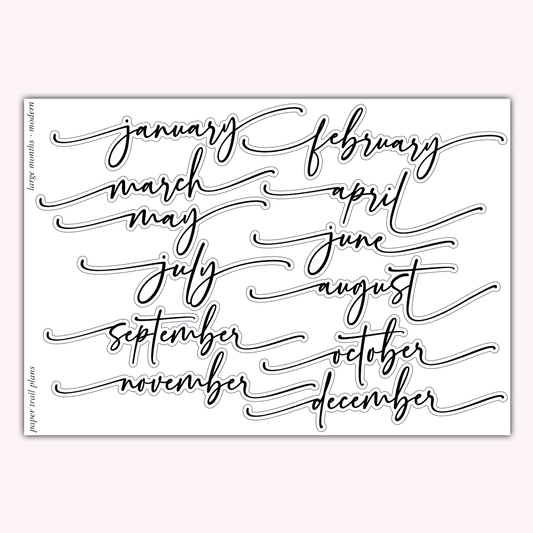 large months · modern
paper trail plans
january
february
march
april
may
june
july
august
september
october
november
december